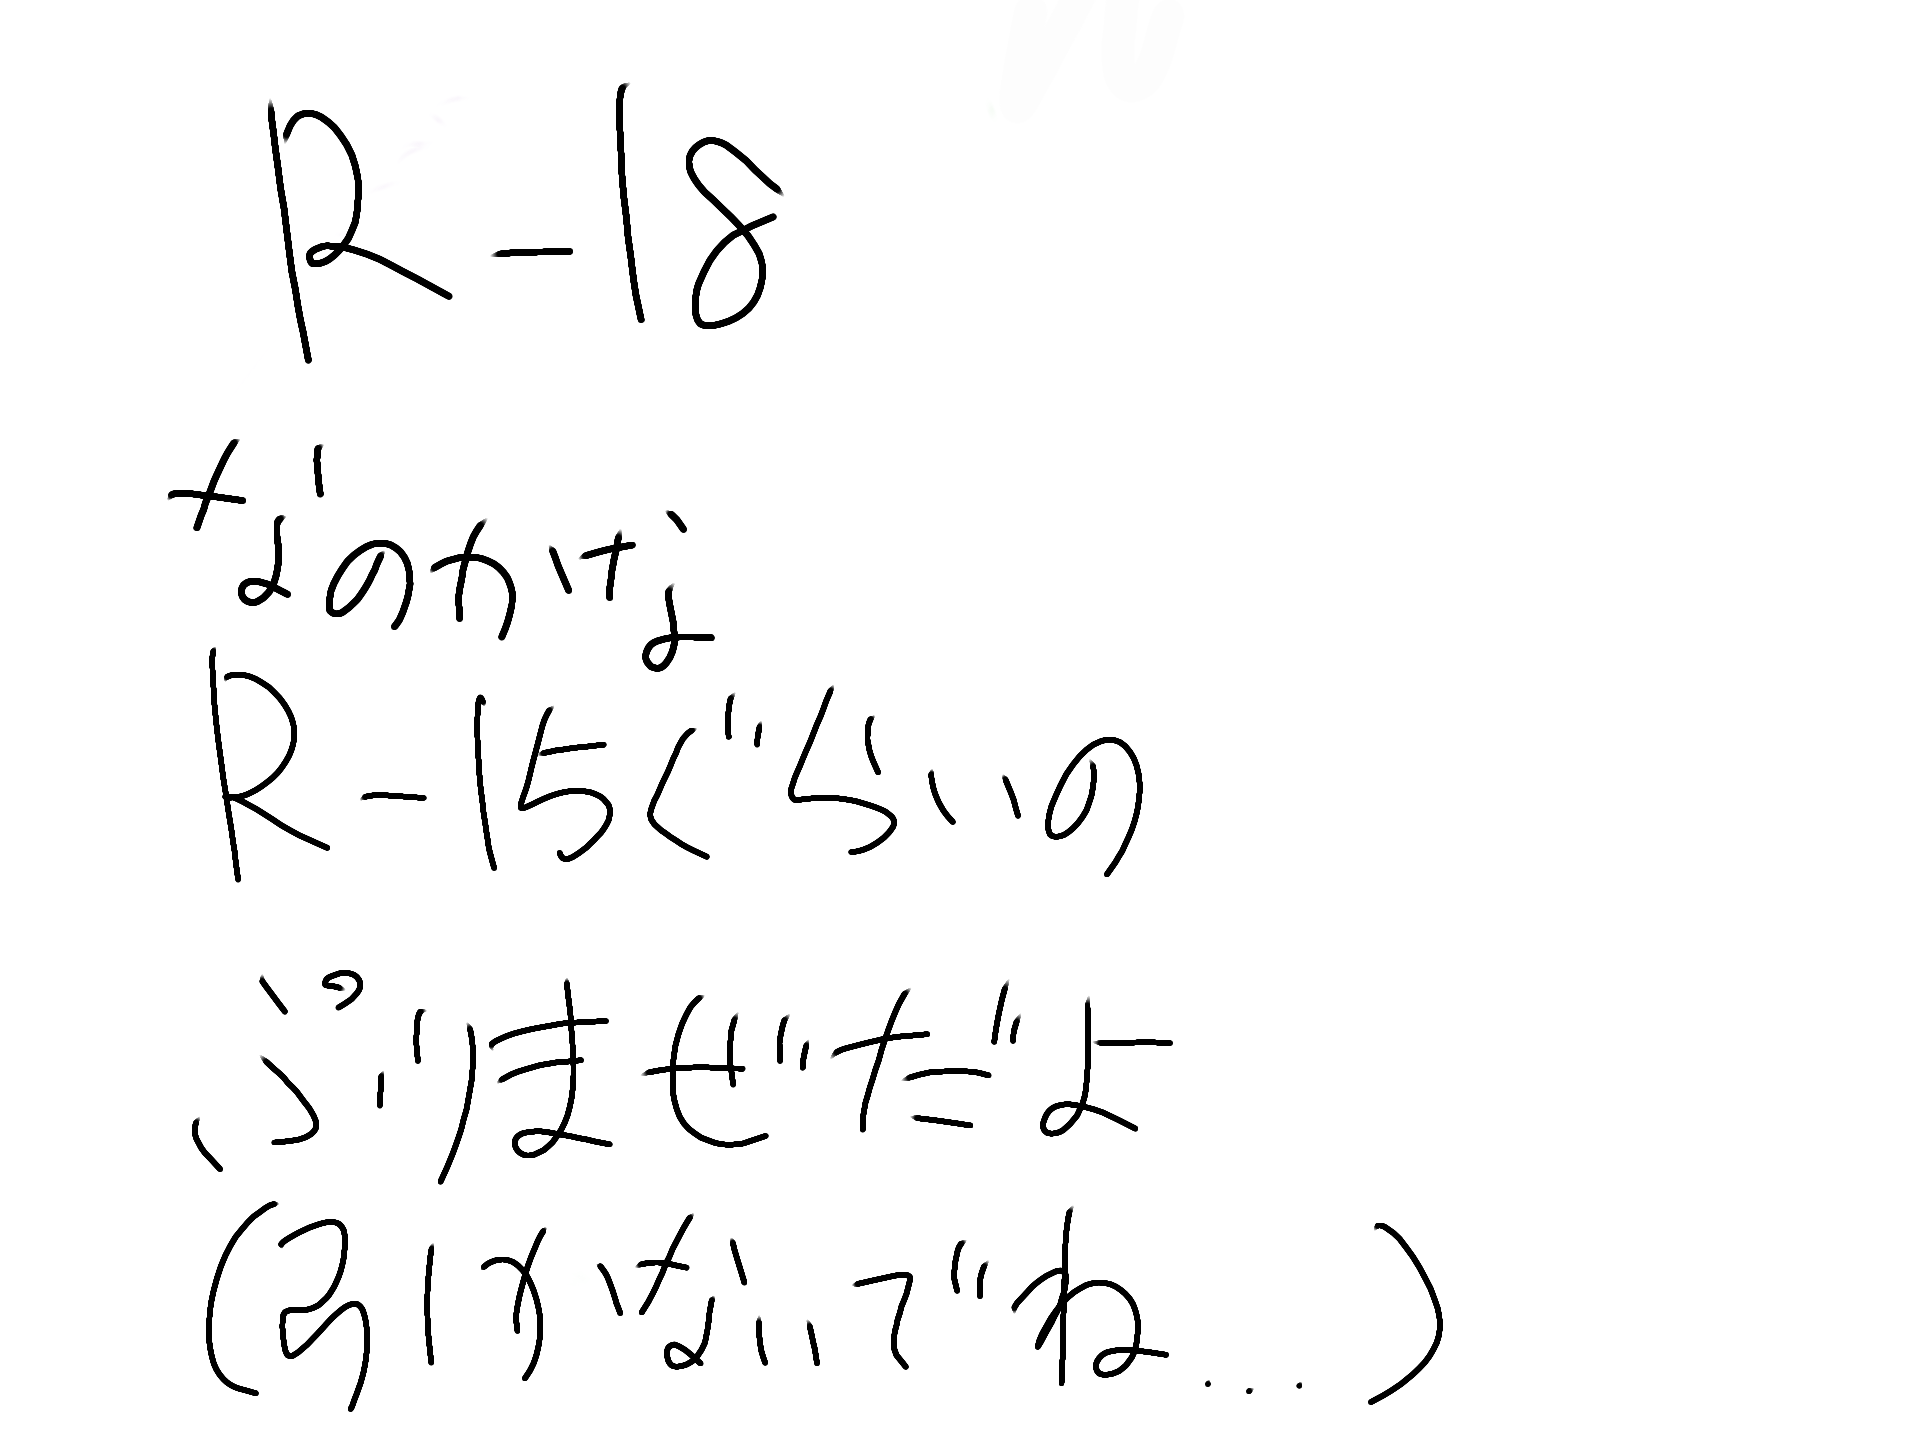 R-18
なのかなよ
R-15ぐらいの
ぷりまぜだよ
(引かないでね...)